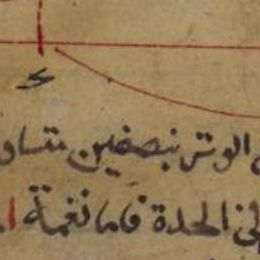 الوتر بنصفين متساو
الحدة فاما نغمة ا